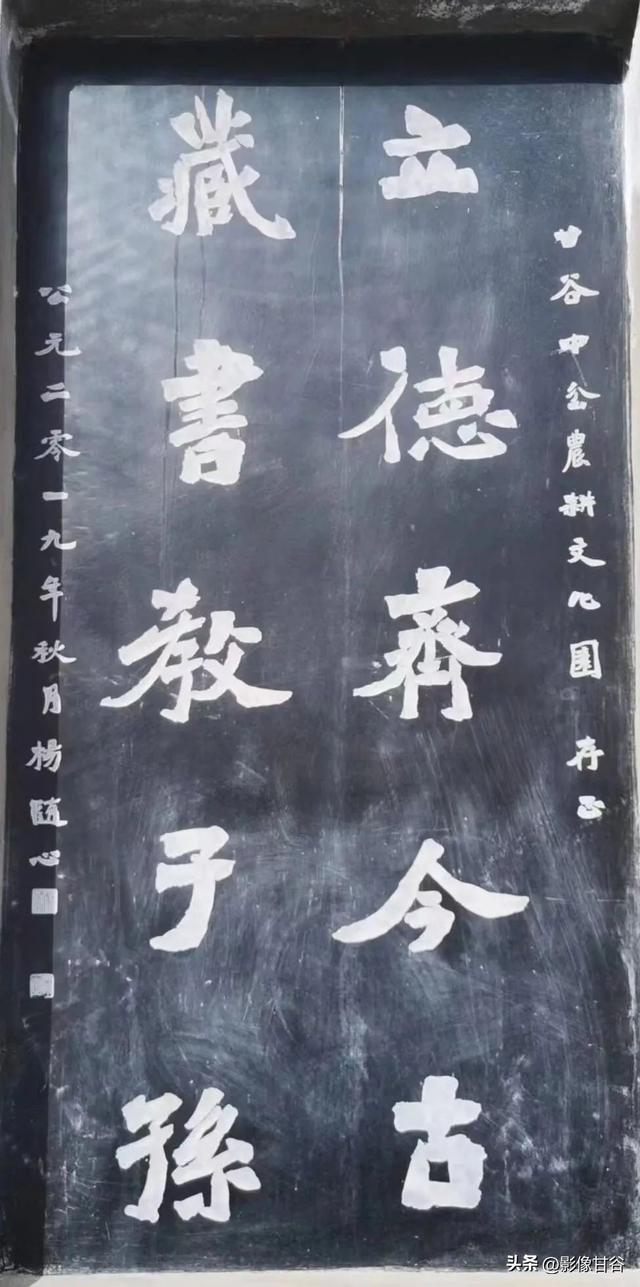 甘谷中岔農耕文化園 存正
立德齊今古
藏書教子孫
公元二零一九年秋月楊随心
头条 @影像甘谷